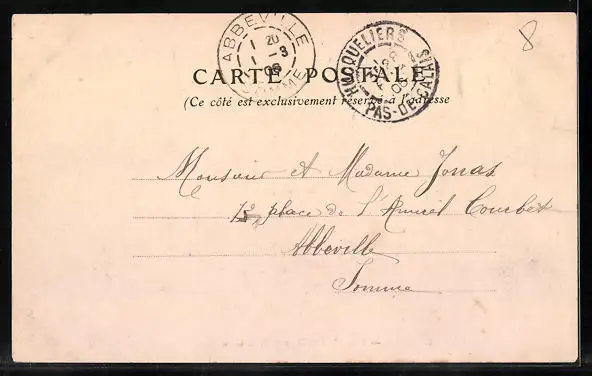 8
ABBEVILLE
1 20
1 -3
06
SOMME
HUCQUELIERS
PAS-DE-CALAIS
CARTE POSTALE
(Ce côté est exclusivement réservé à l'adresse
Monsieur et Madame Jonas
place de l'Amiral Courbet
Abbeville
Somme